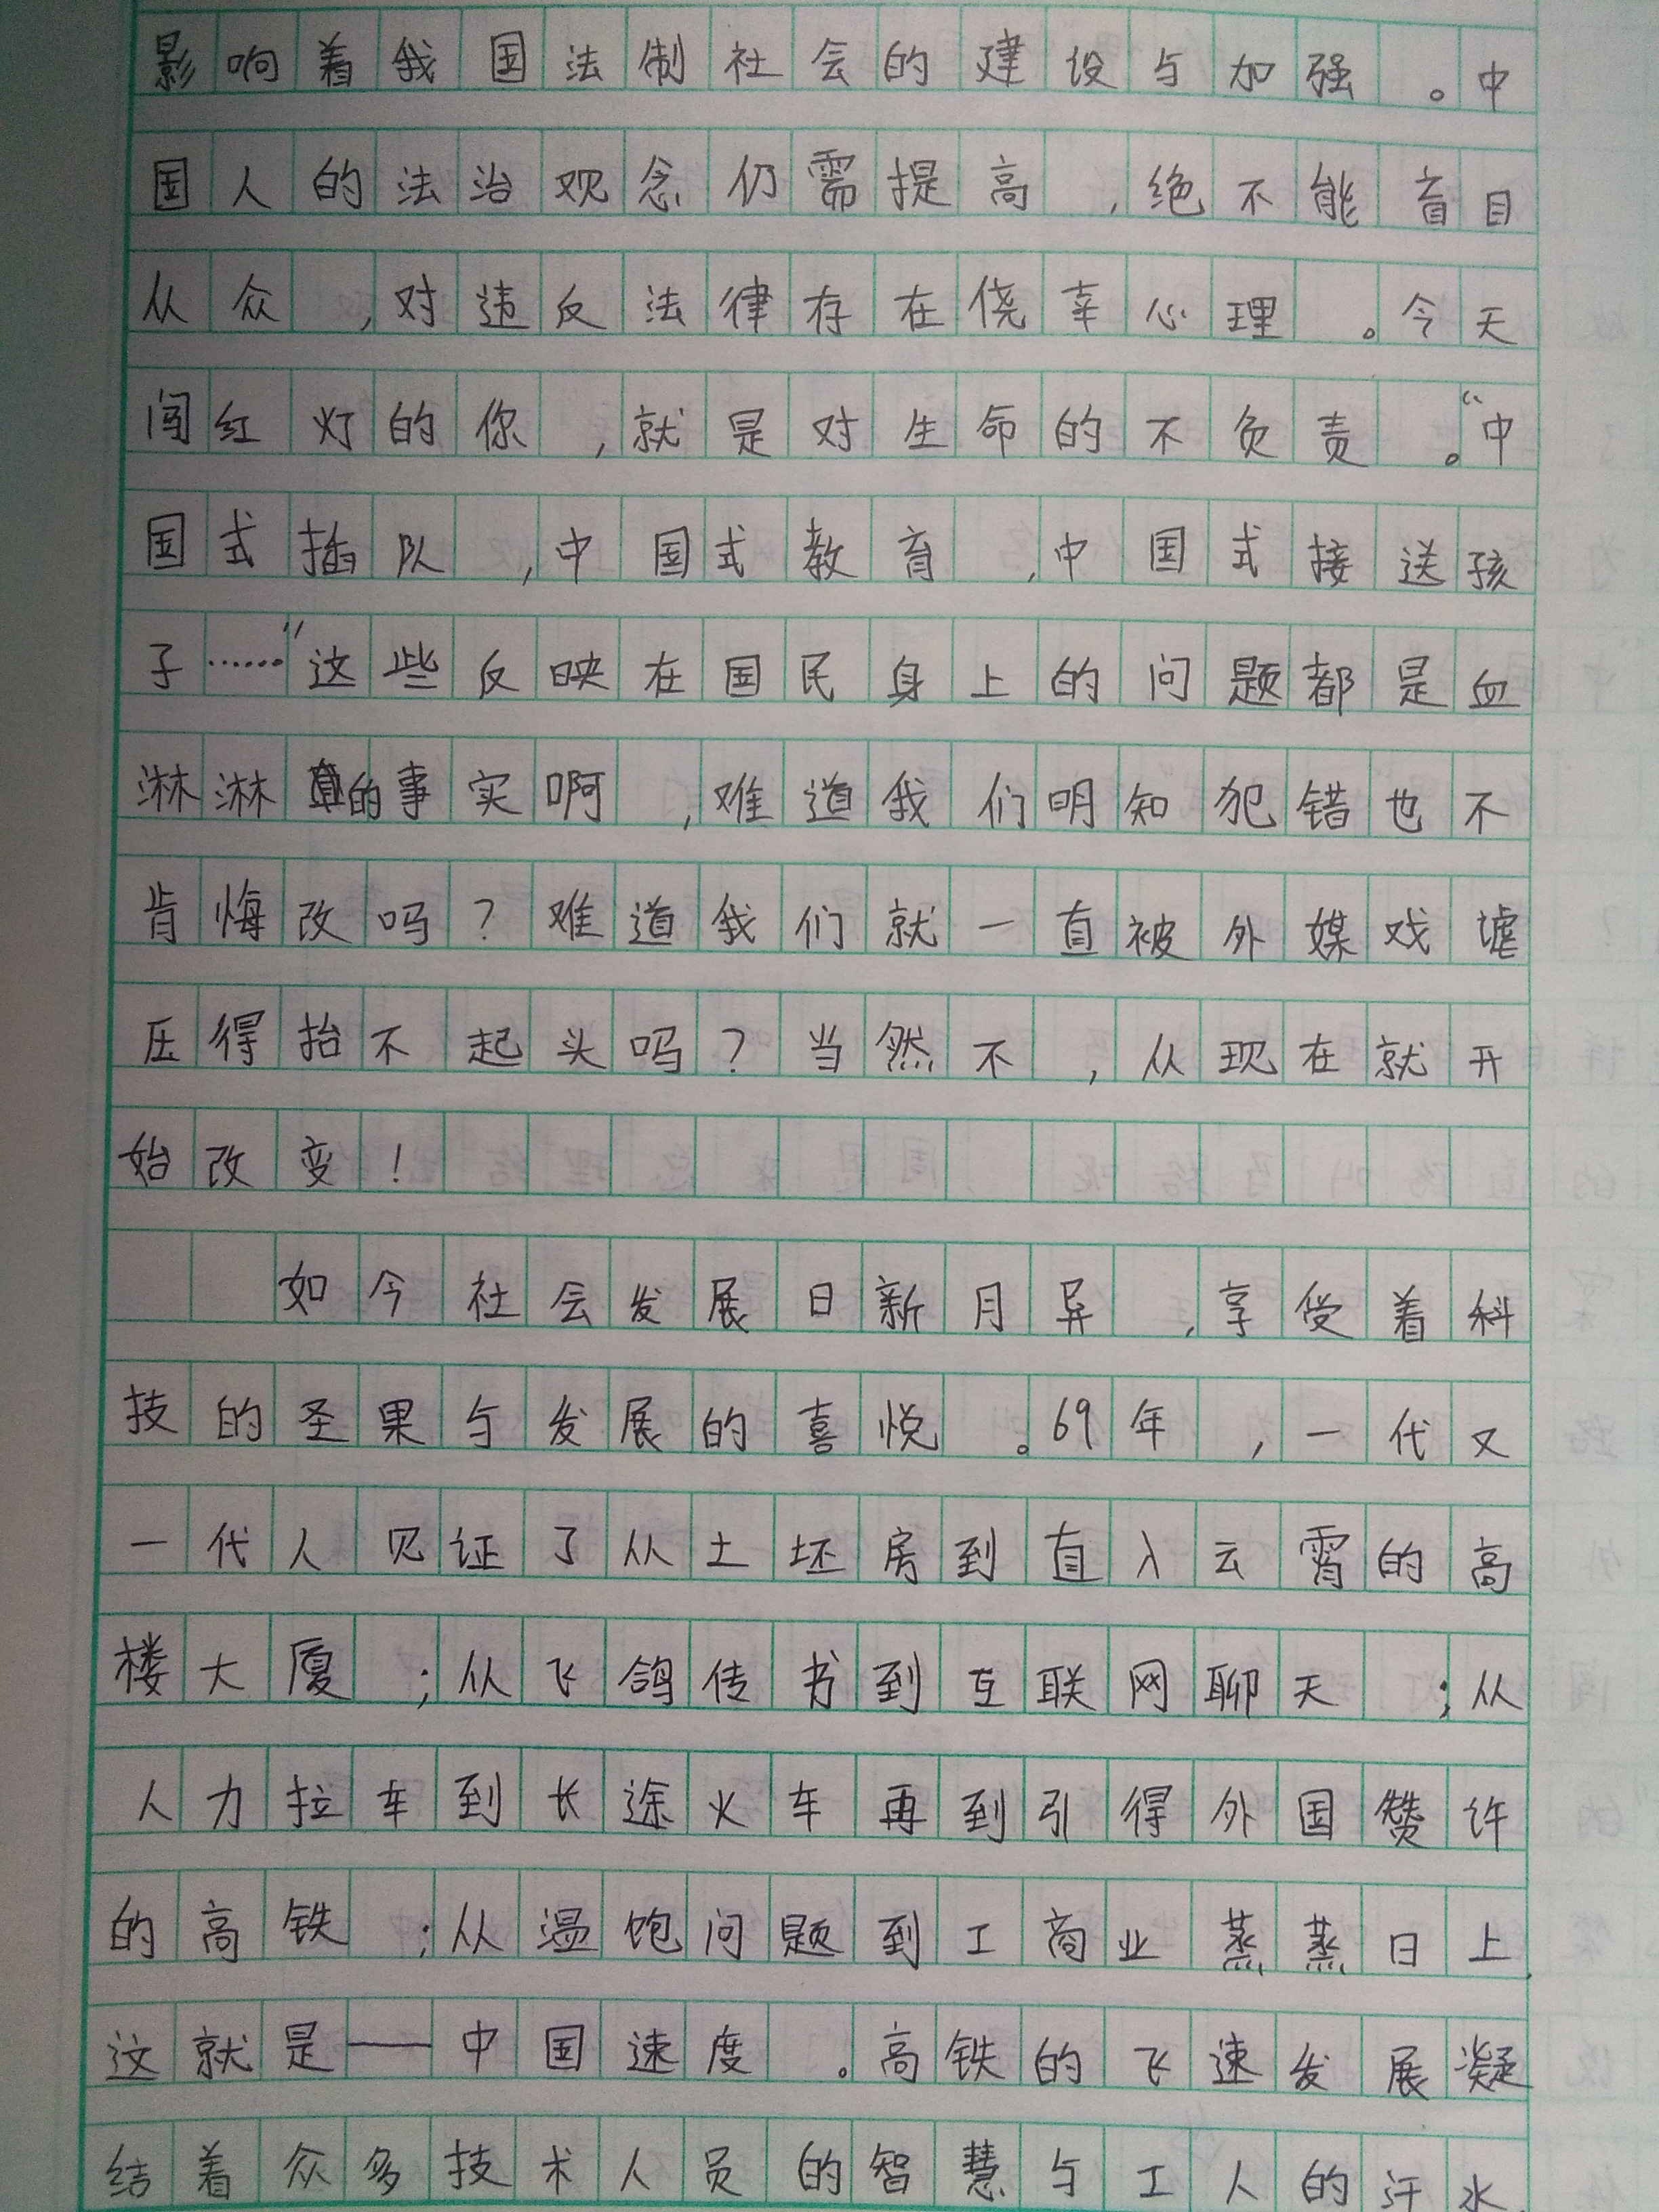 影响着我国法制社会的建设与加强。中
国人的法治观念仍需提高,绝不能盲目
从众,对违反法律存在侥幸心理。今天
闯红灯的你,就是对生命的不负责。“中
国式插队,中国式教育,中国式接送孩
子……”这些反映在国民身上的问题都是血
淋淋的事实啊,难道我们明知犯错也不
肯悔改吗?难道我们就一直被外媒戏谑
压得抬不起头吗?当然不,从现在就开
始改变!
如今社会发展日新月异,享受着科
技的圣果与发展的喜悦。69年,一代又
一代人见证了从土坯房到直入云霄的高
楼大厦;从飞鸽传书到互联网聊天;从
人力拉车到长途火车再到引得外国赞许
的高铁;从温饱问题到工商业蒸蒸日上,
这就是——中国速度。高铁的飞速发展凝
结着众多技术人员的智慧与工人的汗水